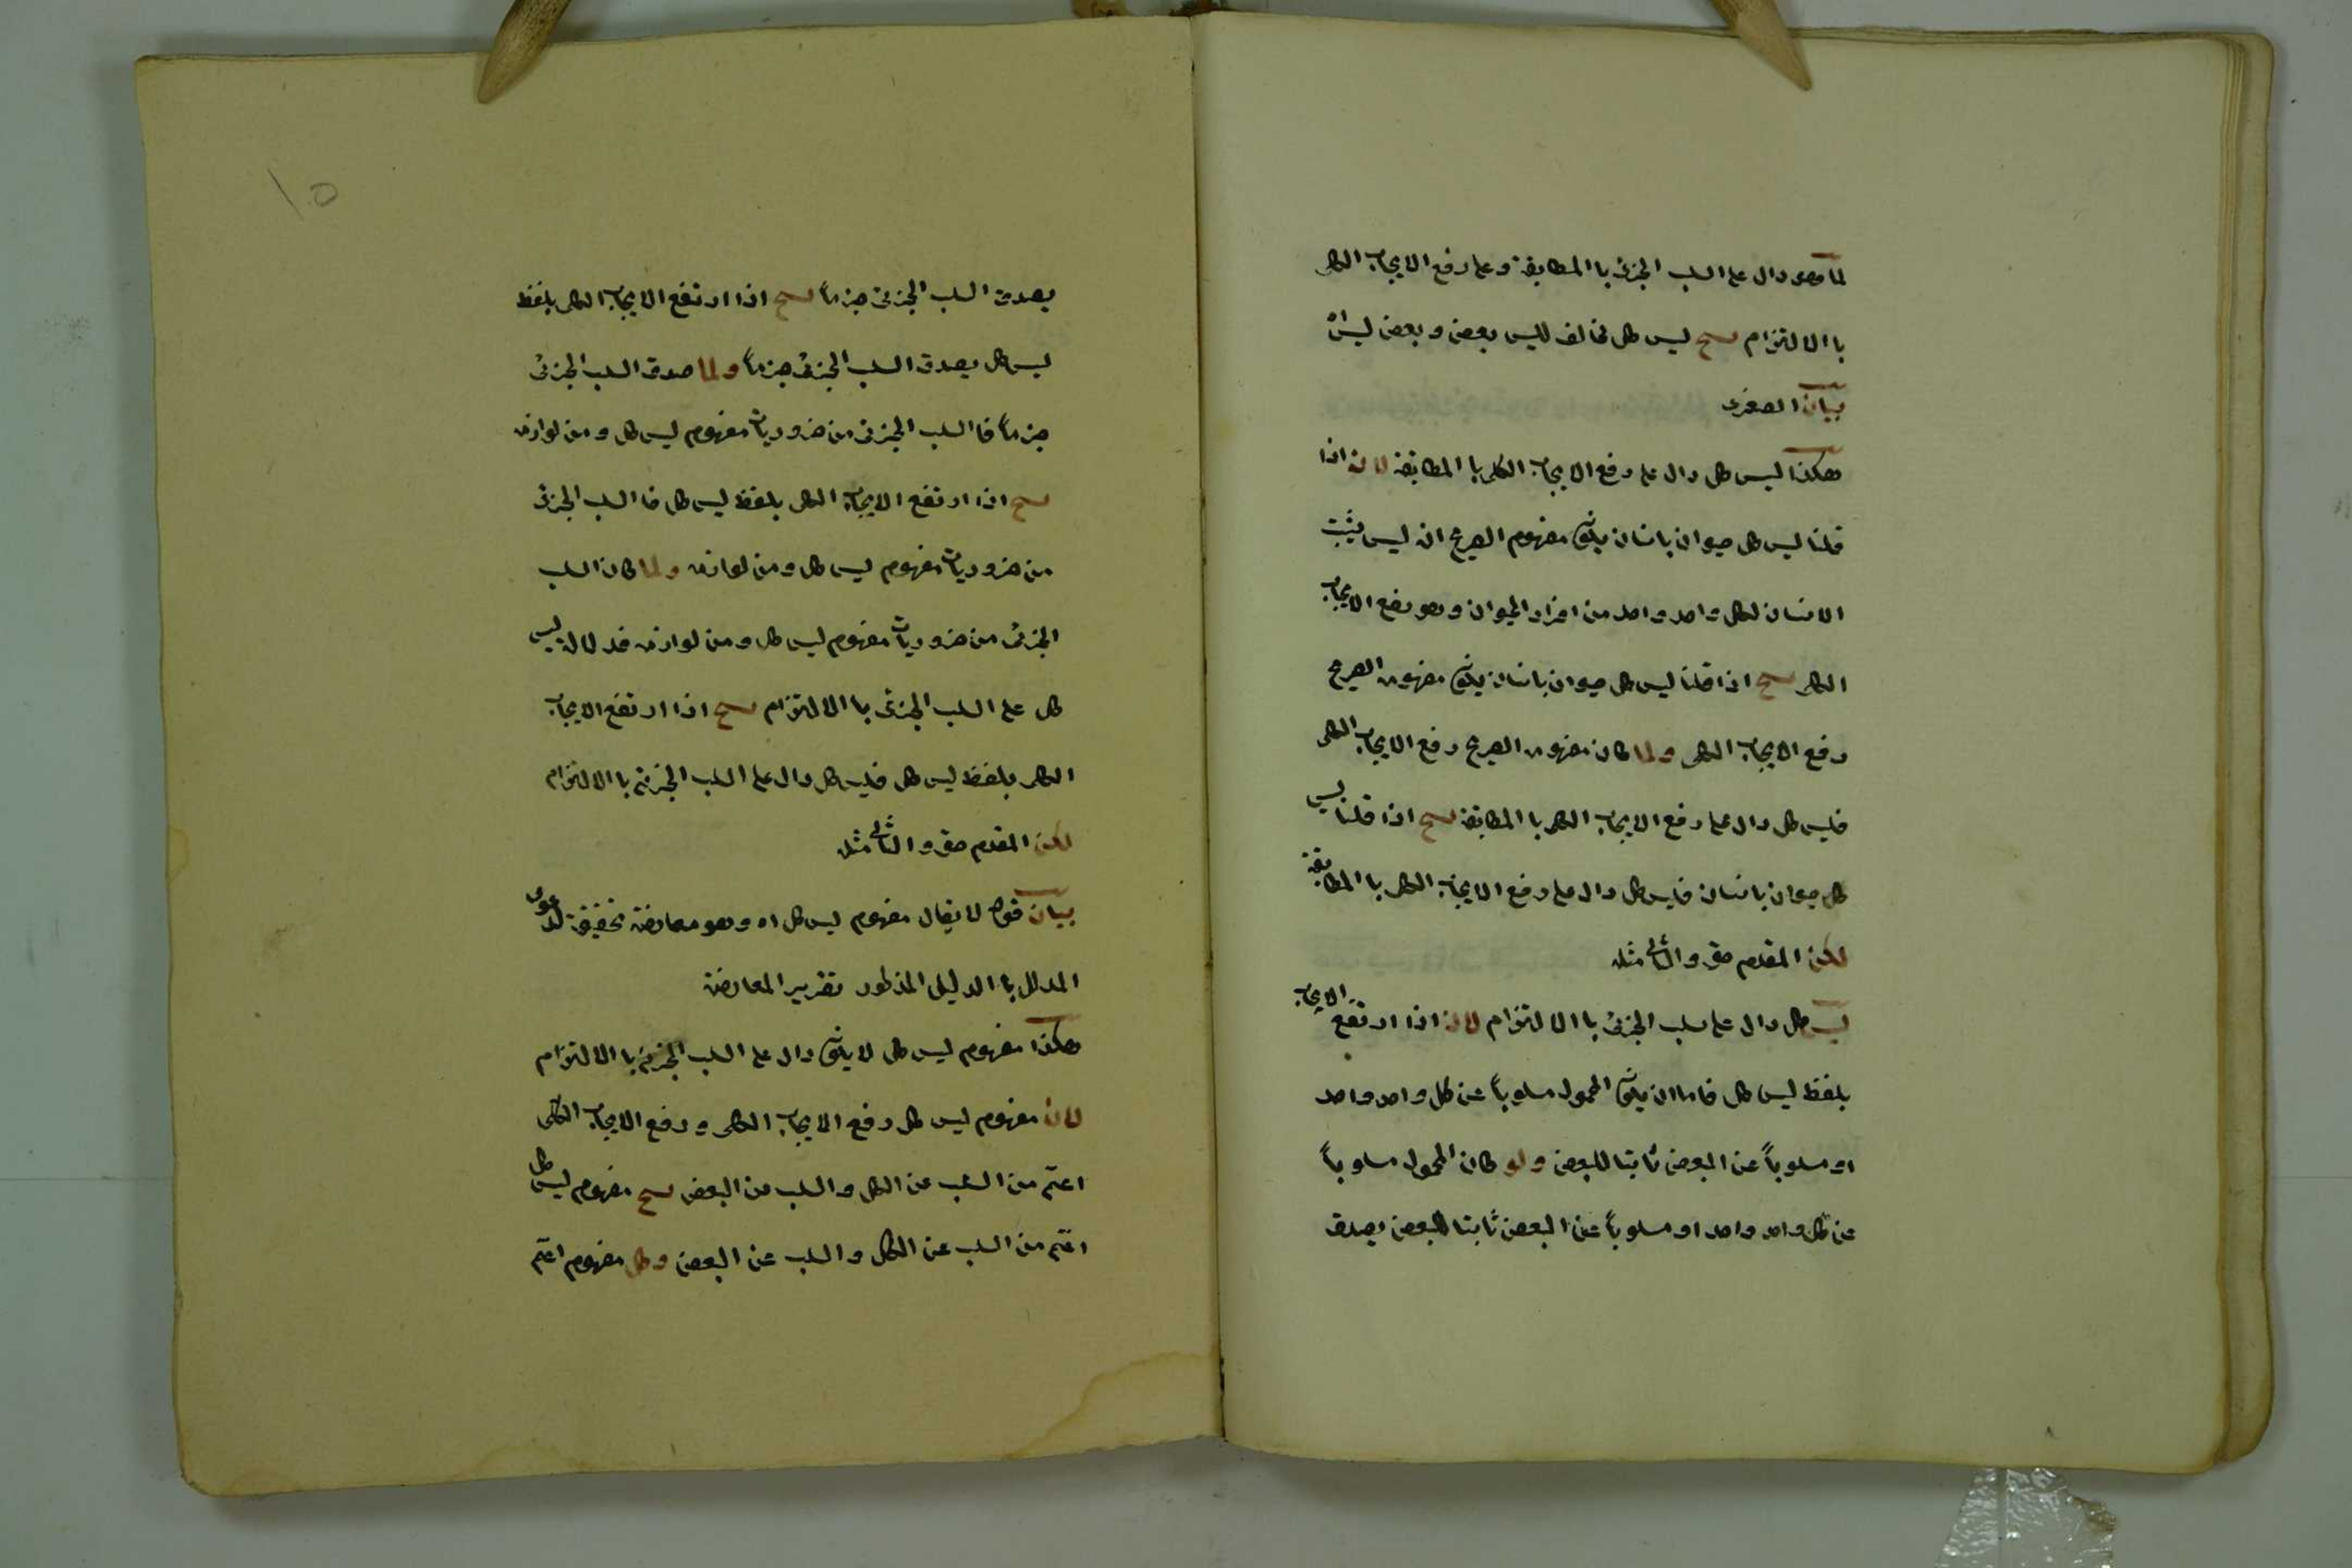 لما هو دال على السلب الجزئى با المطابقة وعلى رفع الايجاب الكلى
با الالتزام ليس كل مخالف لليس بعض وبعض ليس
بيان الصغرى
هكذا ليس كل دال على رفع الايجاب الكلى با المطابقة لان اذا
قلنا ليس كل حيوان بانسان يكون مفهوم الصريح انه ليس يثبت
الانسان لكل واحد واحد من افراد الحيوان وهو رفع الايجاب
الكلى اذا قلنا ليس كل حيوان بانسان يكون مفهومه الصريح
رفع الايجاب الكلى ولما كان مفهومه الصريح رفع الايجاب الكلى
فليس كل دال على رفع الايجاب الكلى با المطابقة اذا قلنا ليس
كل حيوان بانسان فليس كل دال على رفع الايجاب الكلى با المطابقة
لكن المقدم حق والتالى مثله
ليس كل دال على سلب الجزئى با الالتزام لان اذا ارتفع الايجاب
بلفظ ليس كل فاما ان يكون المحمول مسلوباً عن كل واحد واحد
او مسلوباً عن البعض ثابتا للبعض ولو كان المحمول مسلوباً
عن كل واحد واحد او مسلوباً عن البعض ثابتا للبعض يصدق
١٥
يصدق السلب الجزئى جزماً اذا ارتفع الايجاب الكلى بلفظ
ليس كل يصدق السلب الجزئى جزماً ولما صدق السلب الجزئى
جزماً فا السلب الجزئى من ضروريات مفهوم ليس كل ومن لوازمه
اذا ارتفع الايجاب الكلى بلفظ ليس كل فا السلب الجزئى
من ضروريات مفهوم ليس كل ومن لوازمه ولما كان السلب
الجزئى من ضروريات مفهوم ليس كل ومن لوازمه فدلالة ليس
كل على السلب الجزئى با الالتزام اذا ارتفع الايجاب
الكلى بلفظ ليس كل فليس كل دال على السلب الجزئى با الالتزام
لكن المقدم حق والتالى مثله
بيان قوله لا يقال مفهوم ليس كل اه وهو معارضة تحقيقة لدعوى
المدلل با الدليل المذكور تقرير المعارضة
هكذا مفهوم ليس كل لا يكون دال على السلب الجزئى با الالتزام
لان مفهوم ليس كل رفع الايجاب الكلى ورفع الايجاب الكلى
اعم من السلب عن الكل والسلب عن البعض مفهوم ليس كل
اعم من السلب عن الكل والسلب عن البعض وكل مفهوم اعم